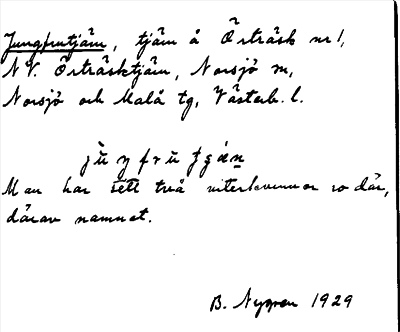 Jungfrutjärn, tjärn å Örträsk nr 1,
N V. Örträsktjärn, Norsjö sn,
Norsjö och Malå tg, Västerb. l.
Man har sett två viterkvinnor ro där,
därav namnet.
B. Nygren 1929